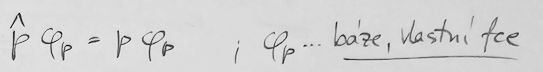 p̂ φₚ = p φₚ ; φₚ... báze, vlastní fce